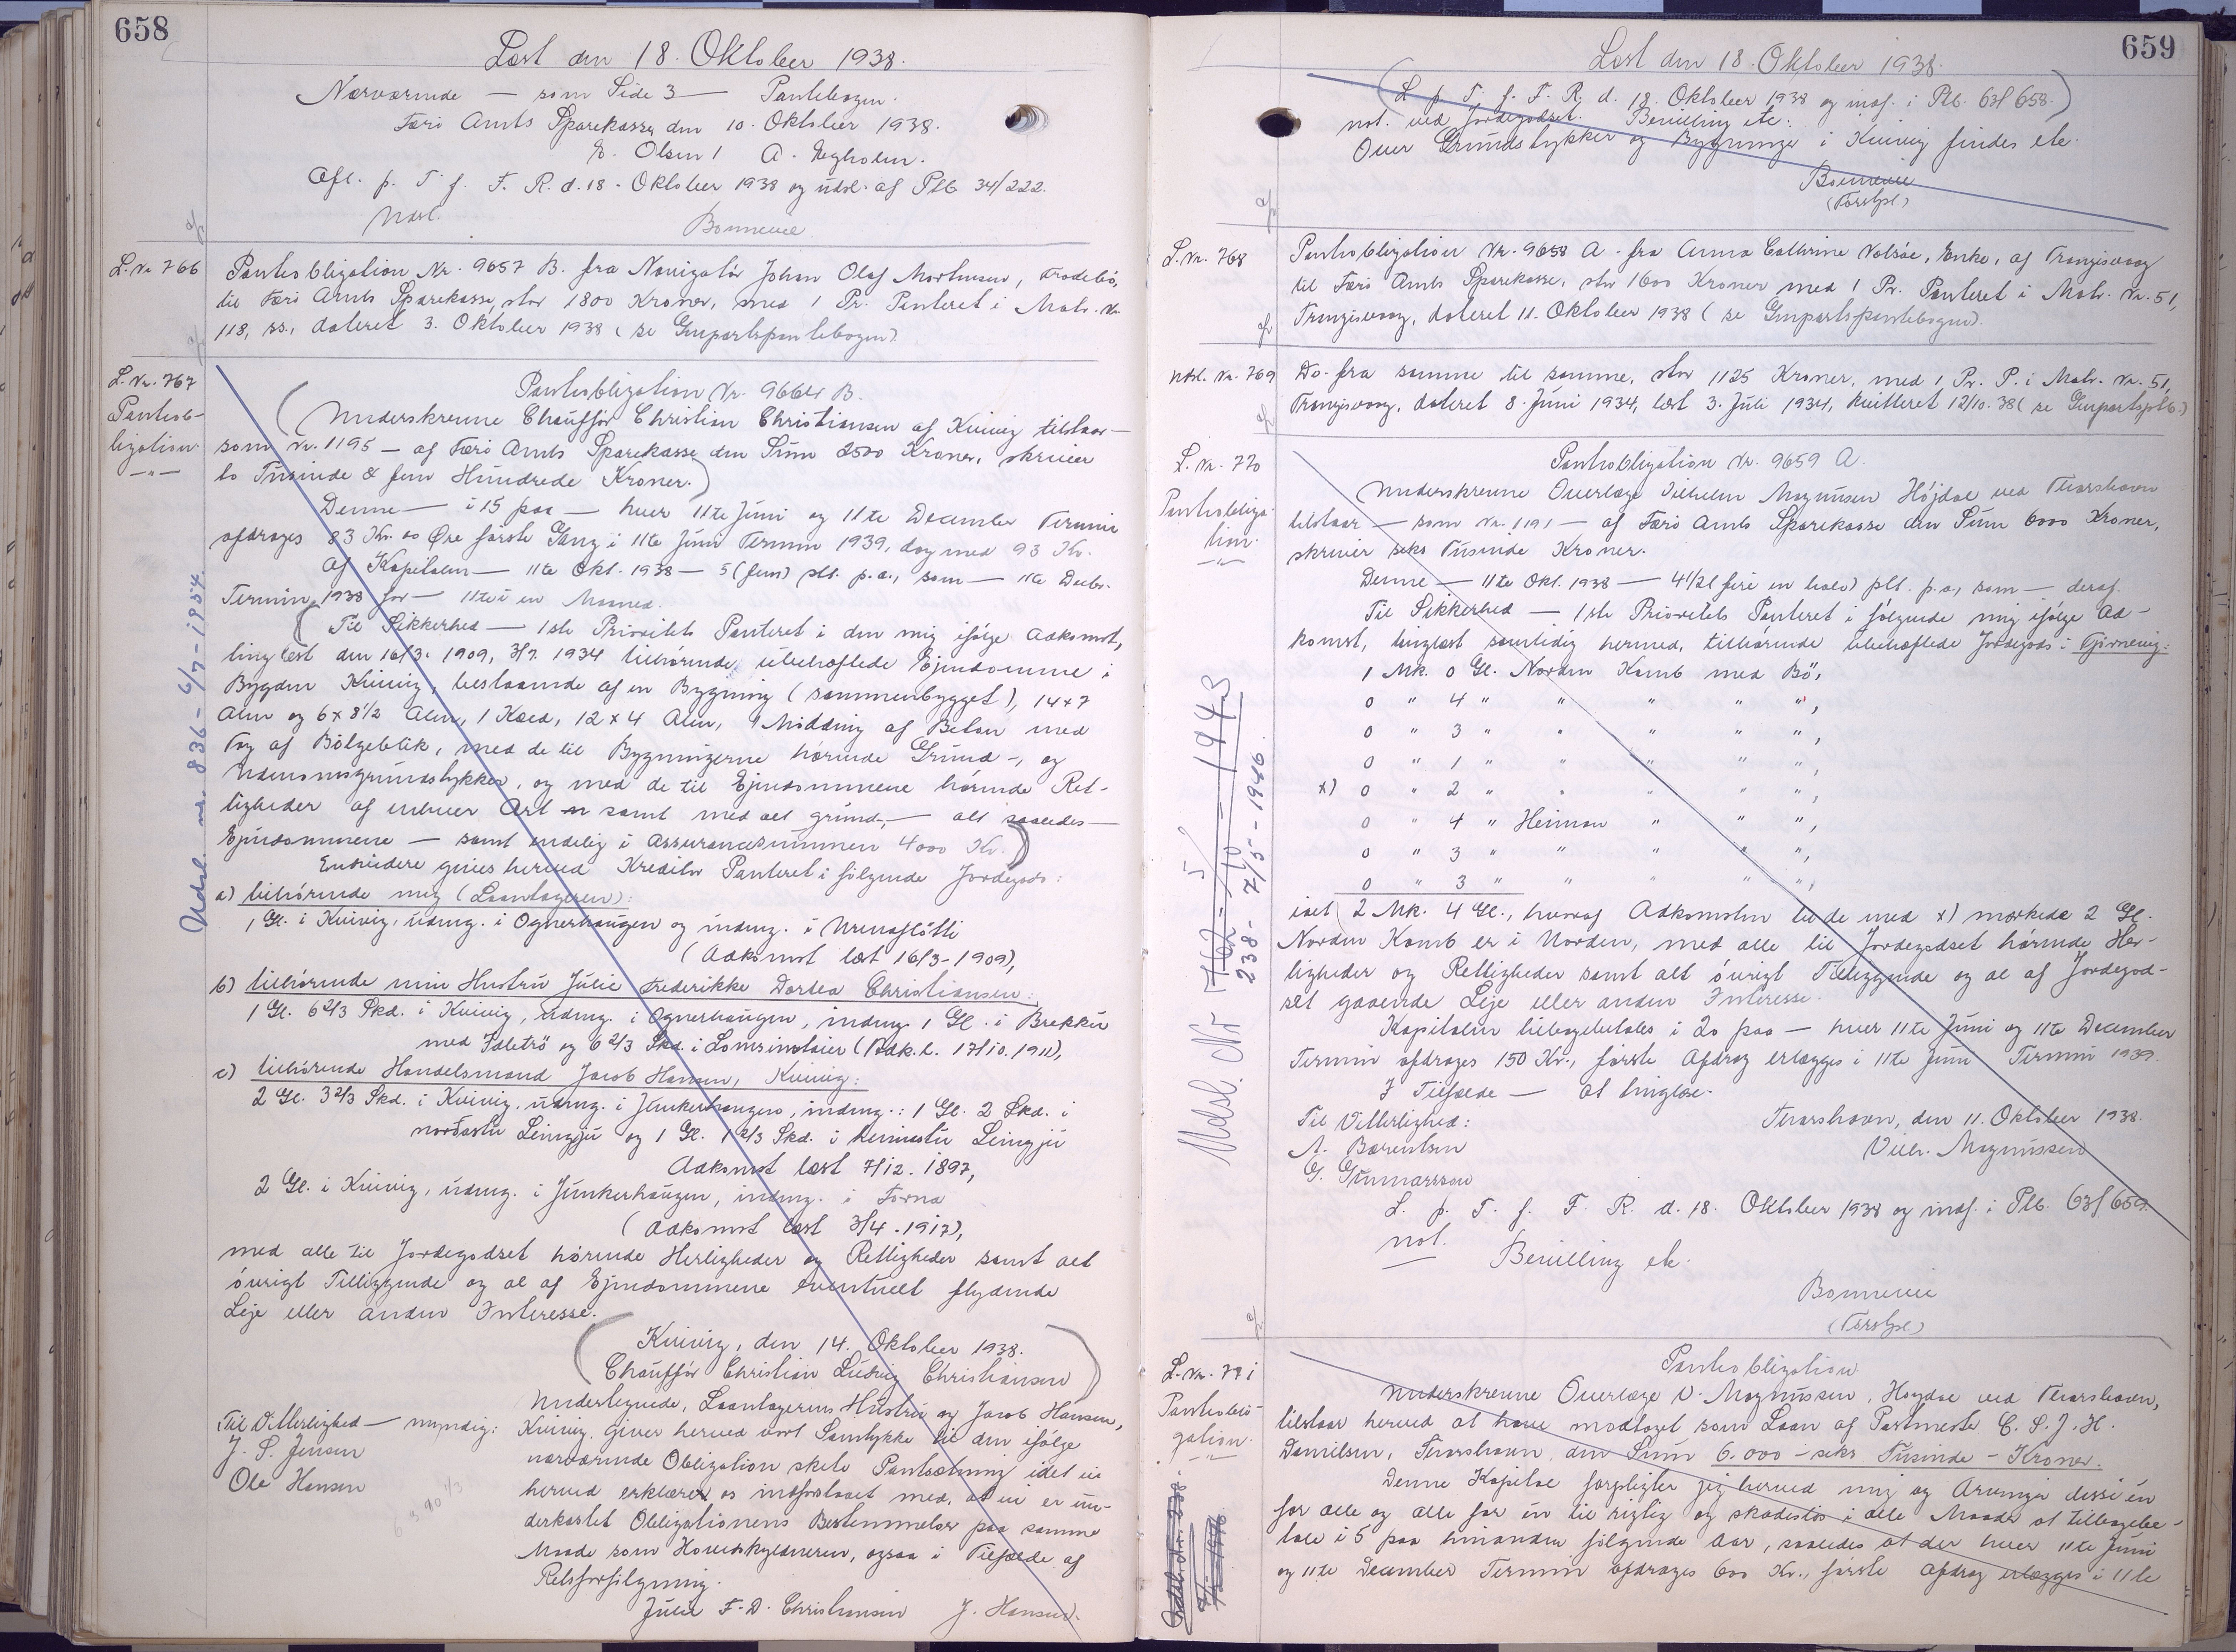 658
Læst den 18. Oktober 1938.
Nærværende — som Side 3 — Pantebogen.
Færø Amts Sparekasse den 10. Oktober 1938.
E. Olsen / A. Egholm.
Afl. p. T. f. F. R. d. 18. Oktober 1938 og udsl. af Ptb 34/222.
Bonnevie
L. Nr. 766
Pantobligation Nr. 9657 B. fra Navigatør Johan Olaf Mortensen, Trodebø,
til Færø Amts Sparekasse, stor 1800 Kroner, med 1 Pr. Panteret i Matr. Nr.
118, ss., dateret 3. Oktober 1938 (se Genpartspantebogen)
L. Nr. 767
Pantob-
ligation
— " —
Pantobligation Nr. 9664 B.
(Underskrevne Chauffør Christian Christiansen af Kvivig tilstaar —
som Nr. 1195 — af Færø Amts Sparekasse den Sum 2500 Kroner, skriver
to Tusinde & fem Hundrede Kroner.)
Denne — i 15 paa — hver 11te Juni og 11te December Termin
afdrages 83 Kr. 00 Øre første Gang i 11te Juni Termin 1939, dog med 93 Kr.
Af Kapitalen — 11te Okt. 1938 — 5 (fem) pct. p.a., som — 11te Decbr.
Termin 1938 for — 11te i en Maaned.
(Til Sikkerhed — 1ste Prioritets Panteret i den mig ifølge Adkomst,
tinglæst den 16/3. 1909, 3/7. 1934 tilhørende ubehæftede Ejendomme i
Bygden Kvivig, bestaaende af en Bygning (sammenbygget), 14 x 7
Alen og 6 x 8 1/2 Alen, 1 Kæld, 12 x 4 Alen, 1 Mødding af Beton med
Tag af Bølgeblik, med de til Bygningerne hørende Grund-, og
Udenomsgrundstykker, og med de til Ejendommene hørende Ret-
tigheder af enhver Art samt med alt grund-, — alt saaledes —
Ejendommene — samt endelig i Assurancesummen 4000 Kr.)
Endvidere gives herved Kreditor Panteret i følgende Jordegods:
a) tilhørende mig (Laantageren):
1 Gl. i Kvivig, udmg. i Ognerhaugen og indmg. i Urensfløtti
(Adkomst læst 16/3-1909),
b) tilhørende min Hustru Julie Frederikke Dortea Christiansen:
1 Gl. 6 2/3 Skd. i Kvivig, udmg. i Ognerhaugen, indmg. 1 Gl. i Brekkur
med Tdletrø og 6 2/3 Skd. i (Adk. l. 17/10. 1911),
c) tilhørende Handelsmand Jacob Hansen, Kvivig:
2 Gl. 3 2/3 Skd. i Kvivig, udmg. i Junkerhaugen, indmg.: 1 Gl. 2 Skd. i
norðastu Leingju og 1 Gl. 1 2/3 Skd. i Leingju
Adkomst læst 7/12. 1897,
2 Gl. i Kvivig, udmg. i Junkerhaugen, indmg. i Forna
(Adkomst læst 3/4. 1917),
med alle til Jordegodset hørende Herligheder og Rettigheder samt alt
øvrigt Tilliggende og al af Ejendommene eventuelt flydende
Leje eller anden Interesse.
(Kvivig, den 14. Oktober 1938.
Chauffør Christian Ludvig Christiansen)
Til Vitterlighed — myndig:
J. S. Jensen
Ole Hansen
Undertegnede, Laantagerens Hustru og Jacob Hansen,
Kvivig, giver herved vort Samtykke til den ifølge
nærværende Obligation skete Pantsætning idet vi
herved erklærer os indforstaaet med, at vi er un-
derkastet Obligationens Bestemmelser paa samme
Maade som Hovedskyldneren, ogsaa i Tilfælde af
Retsforfølgning.
Julie F. D. Christiansen J. Hansen.
Udsl. nr. 836 - 6/7 - 1954.
659
Læst den 18. Oktober 1938.
(L. p. T. f. F. R. d. 18. Oktober 1938 og indf. i Ptb. 63/658.)
not. ved Jordegodset. Bevilling etc.
Over Grundstykker og Bygninger i Kvivig findes etc.
Bonnevie
(Forstpl.)
L. Nr. 768
Pantobligation Nr. 9658 A. fra Anna Cathrine Dalsåe, Enke, af Trangisvaag
til Færø Amts Sparekasse, stor 1600 Kroner med 1 Pr. Panteret i Matr. Nr. 51,
Trangisvaag, dateret 11. Oktober 1938 (se Genpartspantebogen).
Udsl. Nr. 769
Do. fra samme til samme, stor 1125 Kroner, med 1 Pr. P. i Matr. Nr. 51,
Trangisvaag, dateret 8. Juni 1934, læst 3. Juli 1934, kvitteret 12/10. 38 (se Genpartsptb.)
L. Nr. 770
Pantobliga-
tion.
— " —
Pantobligation Nr. 9659 A.
Underskrevne Overlæge Vilhelm Magnussen Højdal ved Thorshavn
tilstaar — som Nr. 1191 — af Færø Amts Sparekasse den Sum 6000 Kroner,
skriver seks Tusinde Kroner.
Denne — 11te Okt. 1938 — 4 1/2 (fire en halv) pct. p.a., som — deraf.
Til Sikkerhed — 1ste Prioritets Panteret i følgende mig ifølge Ad-
komst, tinglæst samtidig hermed, tilhørende ubehæftede Jordegods i Gjørveig:
1 Mk. 0 Gl. Norden Kamb med Bø,
0 " 4 " " " " ",
0 " 3 " " " " ",
0 " 1 " " " " ",
x) 0 " 2 " " " " ",
0 " 4 " Heiman " " ",
0 " 3 " " " " ",
0 " 3 " " " " ",
ialt 2 Mk. 4 Gl., hvoraf Adkomsten til de med x) mærkede 2 Gl.
Norden Kamb er i Norden, med alle til Jordegodset hørende Her-
ligheder og Rettigheder samt alt øvrigt Tilliggende og al af Jordegod-
set gaaende Leje eller anden Interesse.
Kapitalen tilbagebetales i 20 paa — hver 11te Juni og 11te December
Termin afdrages 150 Kr., første Afdrag erlægges i 11te Juni Termin 1939.
I Tilfælde — at tinglæse.
Til Vitterlighed:
Thorshavn, den 11. Oktober 1938.
A. Bærentsen
Vilh. Magnussen
G. Gunnarsson
L. p. T. f. F. R. d. 18. Oktober 1938 og indf. i Ptb. 63/659.
not.
Bevilling etc.
Bonnevie
(Forstpl.)
Udsl. Nr. 238 - 7/5 - 1946.
L. Nr. 771
Pantobli-
gation.
— " —
Pantobligation
Underskrevne Overlæge V. Magnussen, Højdal ved Thorshavn,
tilstaar herved at have modtaget som Laan af Postmester C. S. J. H.
Danielsen, Thorshavn, den Sum 6.000 - seks Tusinde - Kroner.
Denne Kapital forpligter jeg herved mig og Arvinger disse én
for alle og alle for én til rigtig og skadesløs i alle Maader at tilbagebe-
tale i 5 paa hinanden følgende Aar, saaledes at der hver 11te Juni
og 11te December Termin afdrages 600 Kr., første Afdrag erlægges i 11te